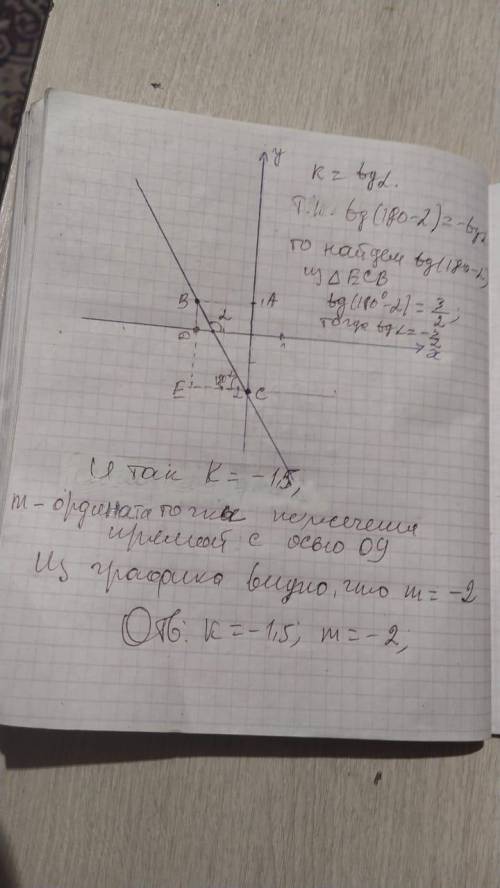 y
K = tgα.
Т.к. tg(180-α) = -tgα
то найдем tg(180-α)
из △ECB
tg(180°-α) = 3/2;
тогда tgα = -3/2
B
1 A
α
D
1
x
E
C
Итак K = -1,5,
m - ордината точки пересечения
прямой с осью Oy
Из графика видно, что m = -2
Отв: K = -1,5; m = -2;